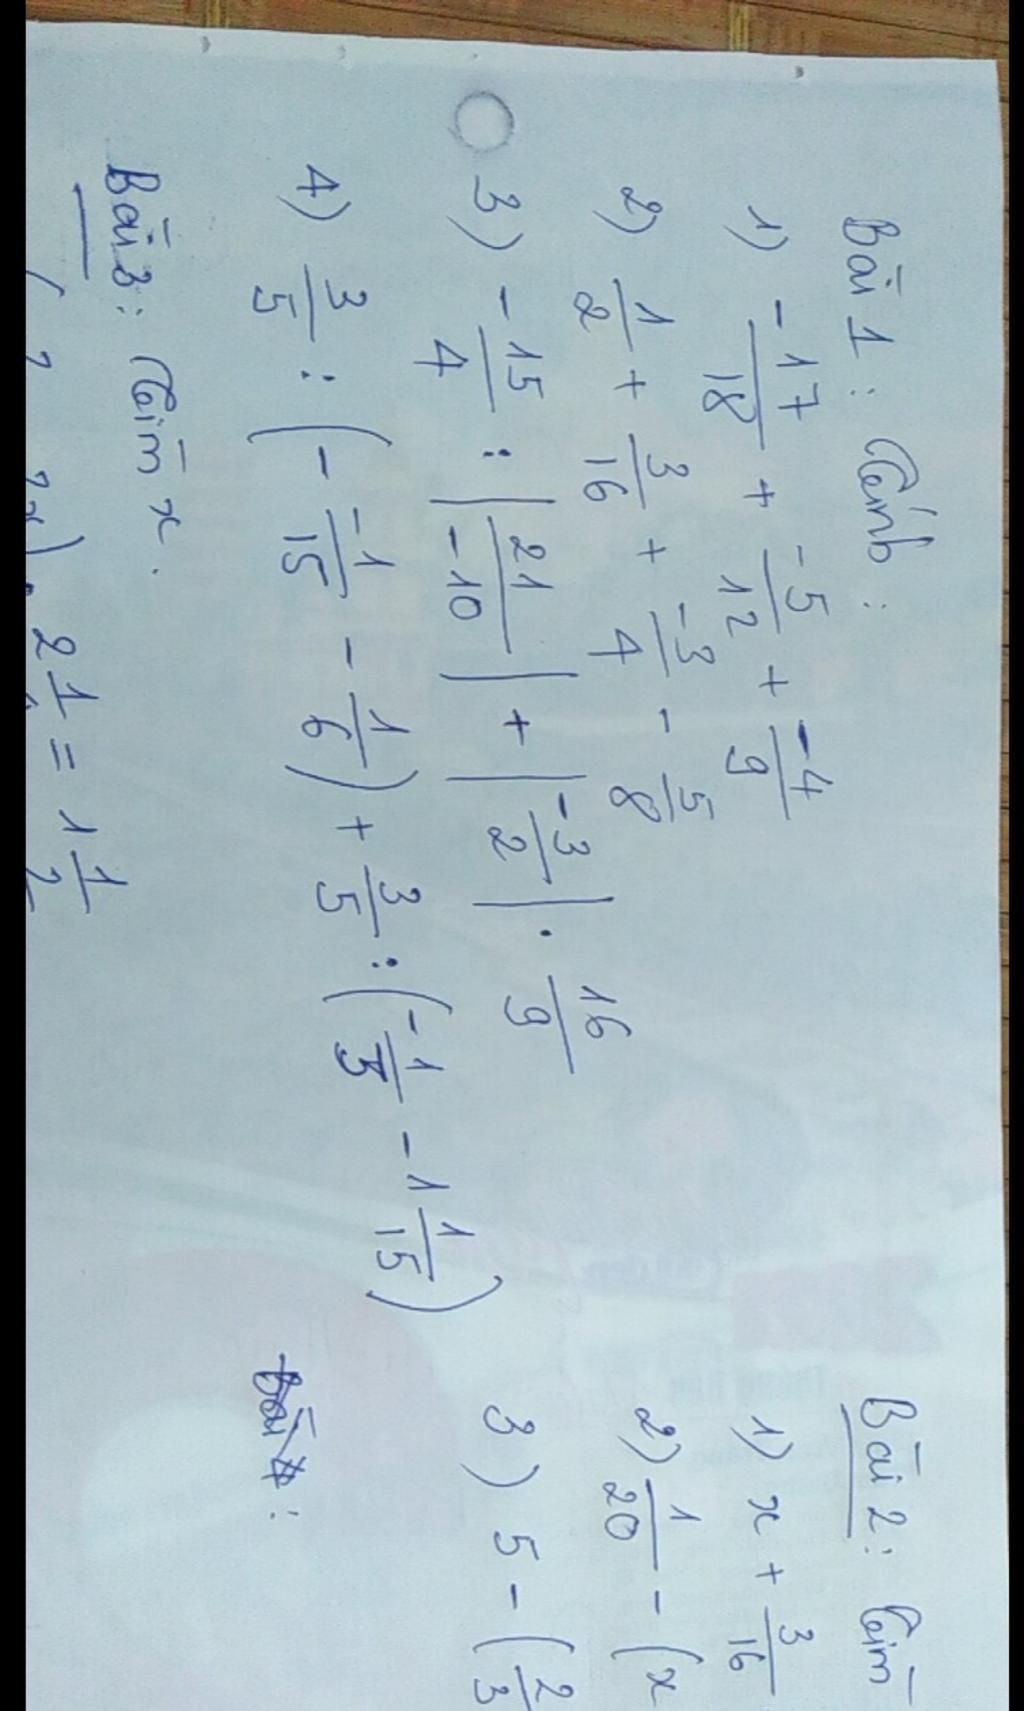 Bài 1: Tính:
1) -17/18 + -5/12 + -4/9
2) 1/2 + 3/16 + -3/4 - 5/8
3) -15/4 : |21/-10| + |-3/2| . 16/9
4) 3/5 : (- -1/15 - 1/6) + 3/5 : (-1/3 - 1 1/15)
Bài 3: Tìm x.
2 1/ = 1 1/2
Bài 2: Tìm
1) x + 3/16
2) 1/20 - (x
3) 5 - (2/3